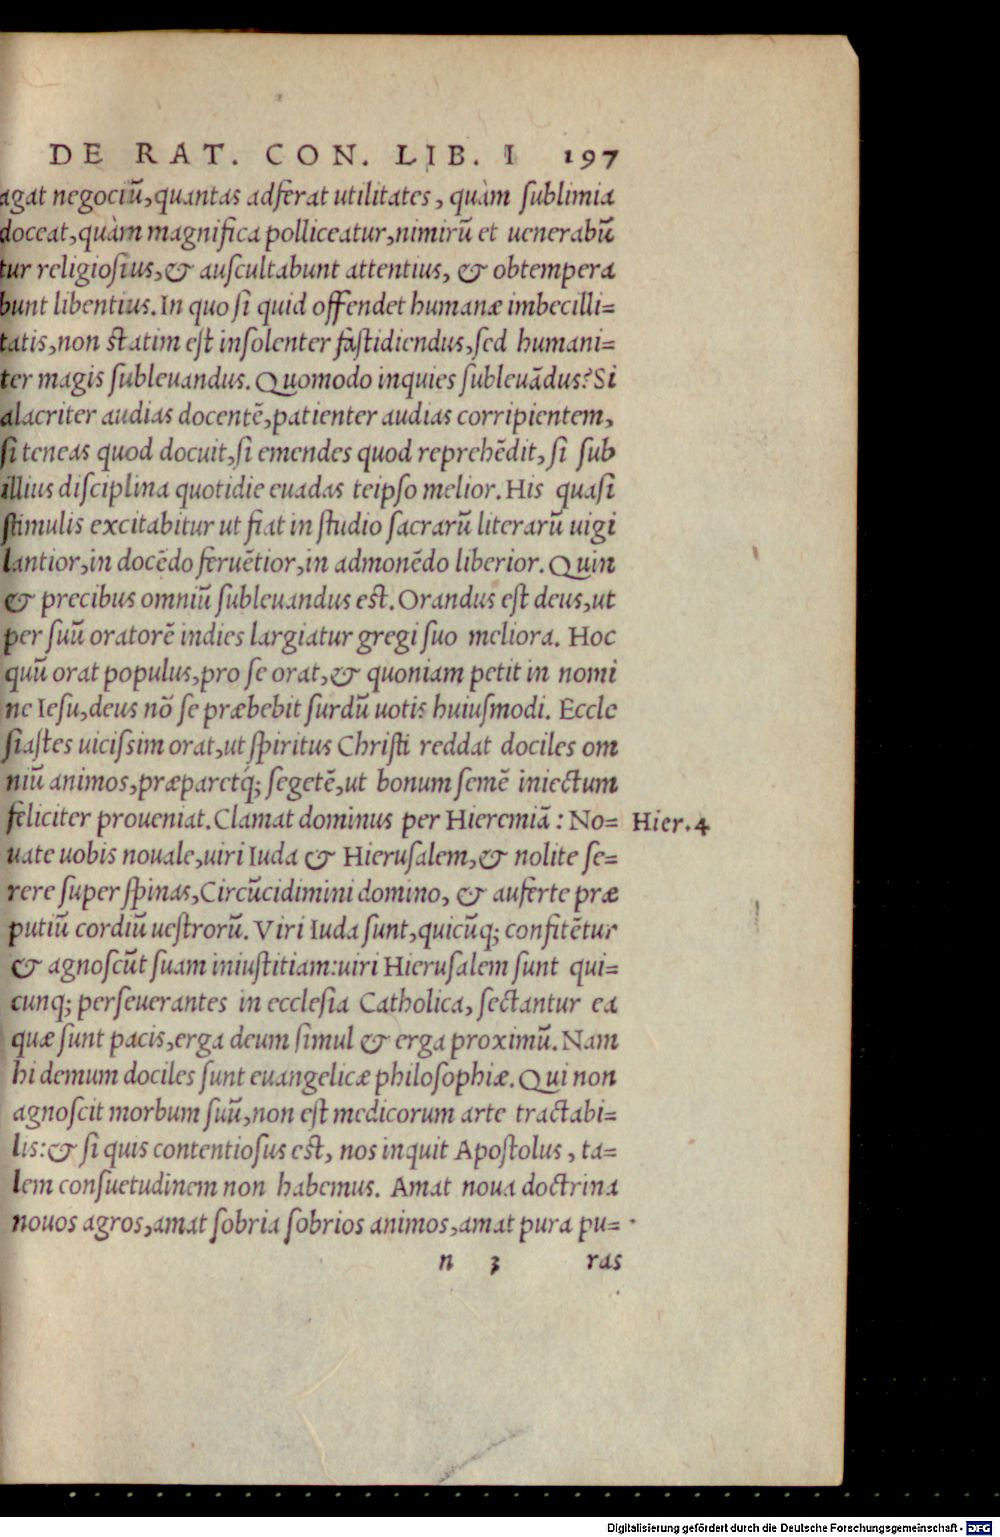 DE RAT. CON. LIB. I 197
agat negociũ,quantas adferat utilitates, quàm sublimia
doceat,quàm magnifica polliceatur,nimirũ et uenerabũ
tur religiosius,& auscultabunt attentius, & obtempera
bunt libentius.In quo si quid offendet humanæ imbecilli=
tatis,non statim est insolenter fastidiendus,sed humani=
ter magis subleuandus.Quomodo inquies subleuãdus?Si
alacriter audias docentẽ,patienter audias corripientem,
si teneas quod docuit,si emendes quod reprehẽdit, si sub
illius disciplina quotidie euadas teipso melior.His quasi
stimulis excitabitur ut fiat in studio sacrarũ literarũ uigi
lantior,in docẽdo feruẽtior,in admonẽdo liberior.Quin
& precibus omniũ subleuandus est.Orandus est deus,ut
per suũ oratorẽ indies largiatur gregi suo meliora. Hoc
quũ orat populus,pro se orat,& quoniam petit in nomi
ne Iesu,deus nõ se præbebit surdũ uotis huiusmodi. Eccle
siastes uicissim orat,ut spiritus Christi reddat dociles om
niũ animos,præparetq́; segetẽ,ut bonum semẽ iniectum
feliciter proueniat.Clamat dominus per Hieremiã : No= Hier.4
uate uobis nouale,uiri Iuda & Hierusalem,& nolite se=
rere super spinas,Circũcidimini domino, & auferte præ
putiũ cordiũ uestrorũ. Viri Iuda sunt,quicũq; confitẽtur
& agnoscũt suam iniustitiam:uiri Hierusalem sunt qui=
cunq; perseuerantes in ecclesia Catholica, sectantur ea
quæ sunt pacis,erga deum simul & erga proximũ. Nam
hi demum dociles sunt euangelicæ philosophiæ.Qui non
agnoscit morbum suũ,non est medicorum arte tractabi=
lis:& si quis contentiosus est, nos inquit Apostolus, ta=
lem consuetudinem non habemus. Amat noua doctrina
nouos agros,amat sobria sobrios animos,amat pura pu=
n 3 ras
Digitalisierung gefördert durch die Deutsche Forschungsgemeinschaft - DFG